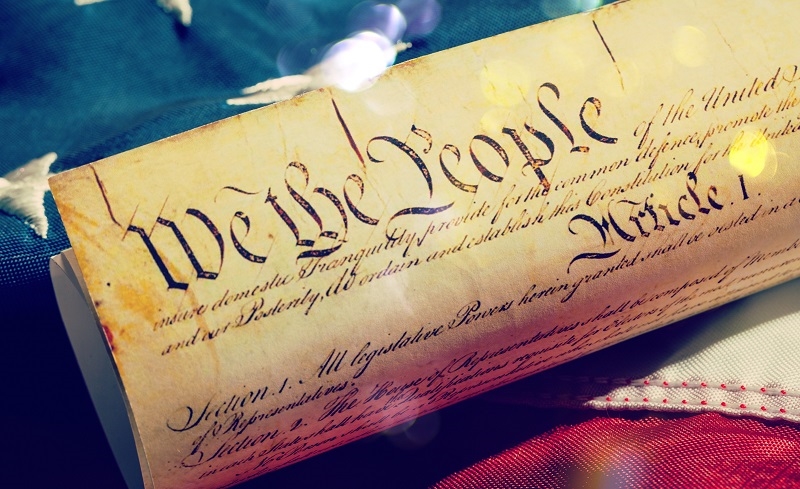 We the People of the United
insure domestic Tranquility, provide for the common defence, promote the
and our Posterity, do ordain and establish this Constitution for the United
Article. I.
Section. 1. All legislative Powers herein granted shall be vested in a
of Representatives.
Section. 2. The House of Representatives shall be composed of Members
in each State shall have Qualifications requisite for Electors of the most
No Person